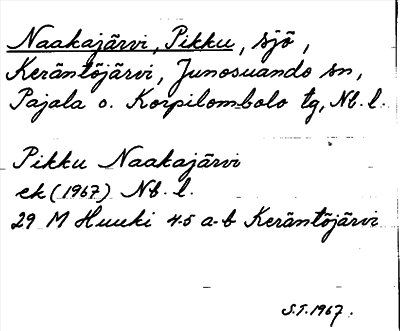 Naakajärvi, Pikku, sjö,
Keräntöjärvi, Junosuando sn,
Pajala o. Korpilombolo tg, Nb. l.
Pikku Naakajärvi
ek (1967) Nb. l.
29 M Huuki 4-5 a-b Keräntöjärvi
S.T. 1967.